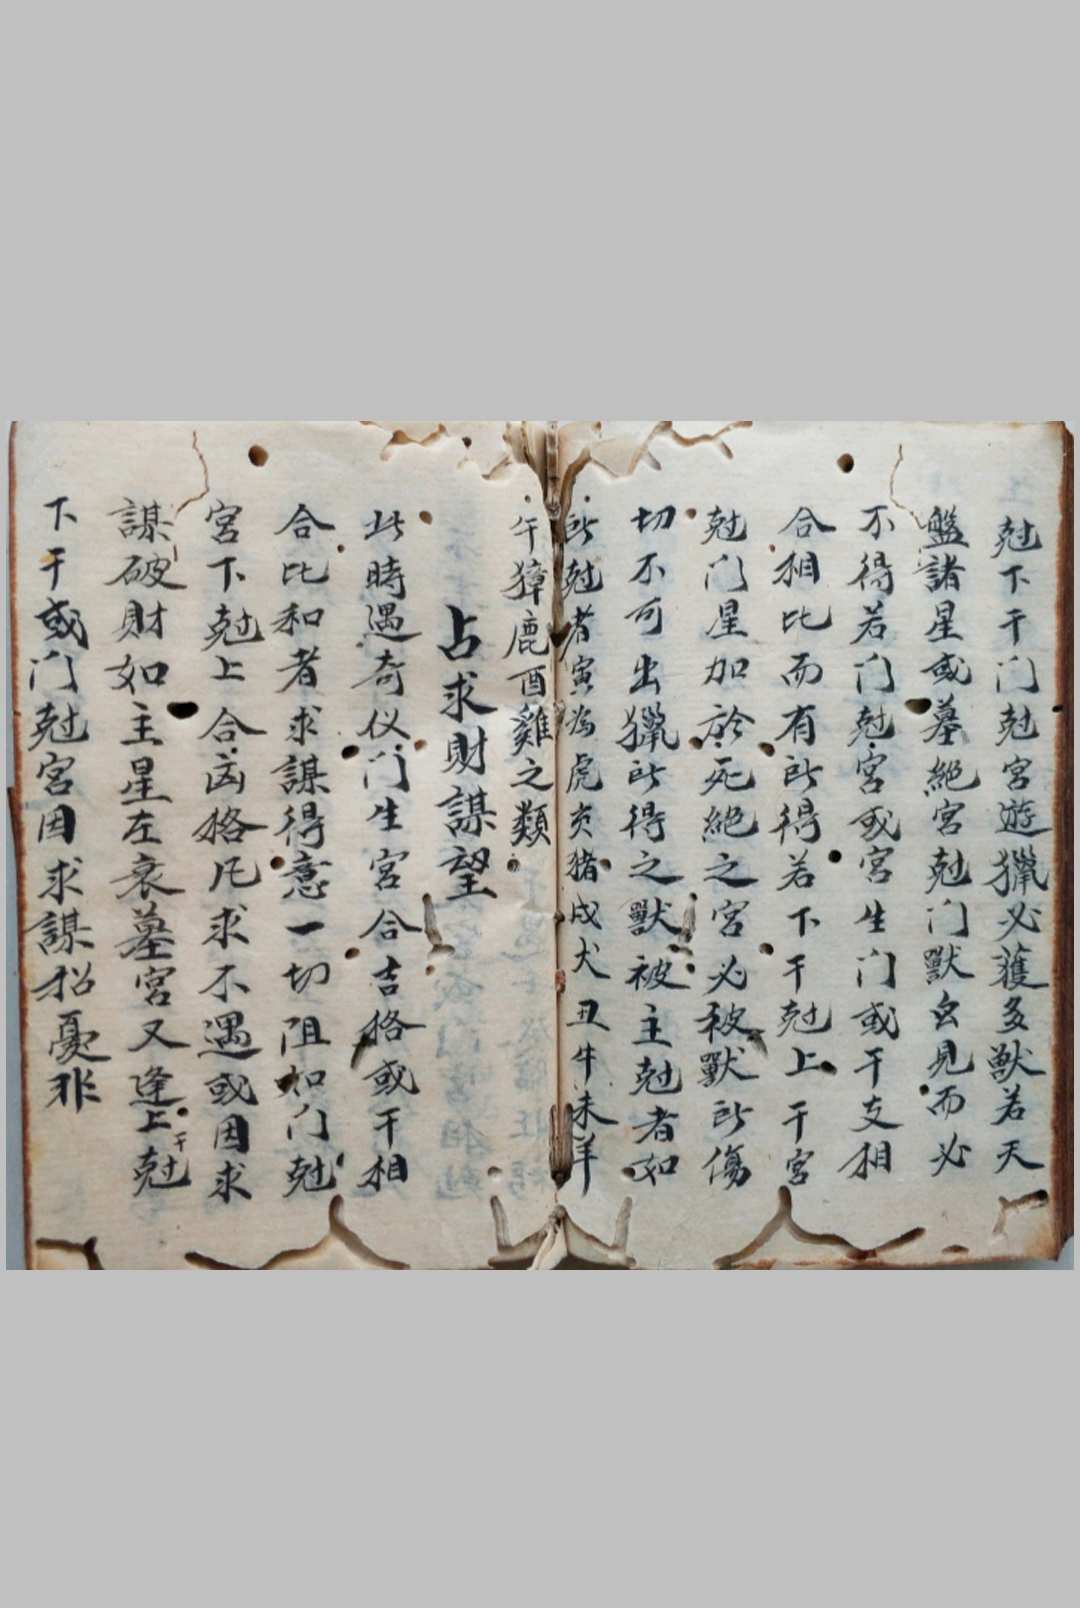 尅下干门尅宮遊獵必獲多獸若天
盤諸星或墓絕宮尅门獸幺見而必
不得若门尅宮或宮生门或干支相
合相比而有所得若下干尅上干宮
尅门星加於死絕之宮必被獸所傷
切不可出獵所得之獸被主尅者如
所尅者寅為虎亥猪戌犬丑牛未羊
午獐鹿酉雞之類
占求財謀望
此時遇奇仪门生宮合吉格或干相
合比和者求謀得意一切阻如门尅
宮下尅上合凶格凡求不遇或因求
謀破財如主星左衰墓宮又逢上干尅
下干或门尅宮因求謀招憂非